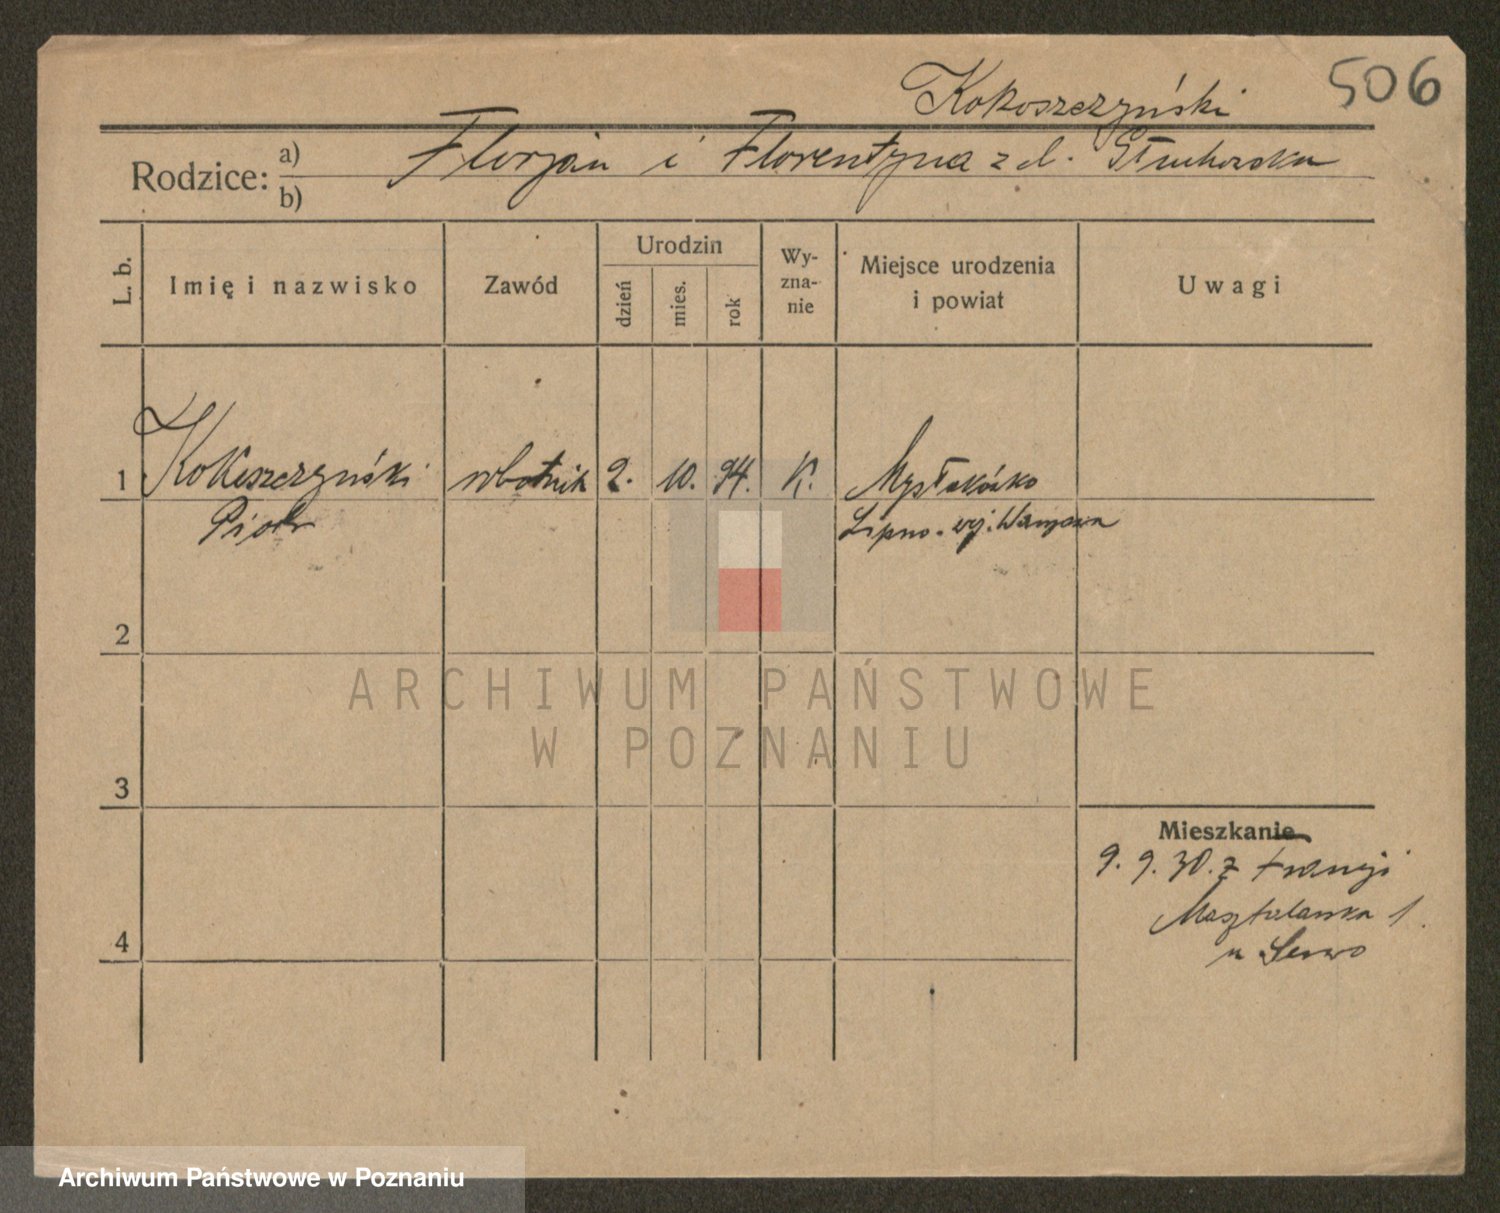 506
Kokoszczyński
Rodzice: a) b)
Florjan i Florentyna z d. Głuchowska
L. b.
Imię i nazwisko
Zawód
Urodzin
dzień
mies.
rok
Wy-
zna-
nie
Miejsce urodzenia
i powiat
Uwagi
1 Kokoszczyński robotnik 2. 10. 94. K.
Piotr Lipno
2
ARCHIWUM PAŃSTWOWE
W POZNANIU
3
Mieszkanie
9. 9. 30. z Francji
Masztalarska 1
4
u
Archiwum Państwowe w Poznaniu